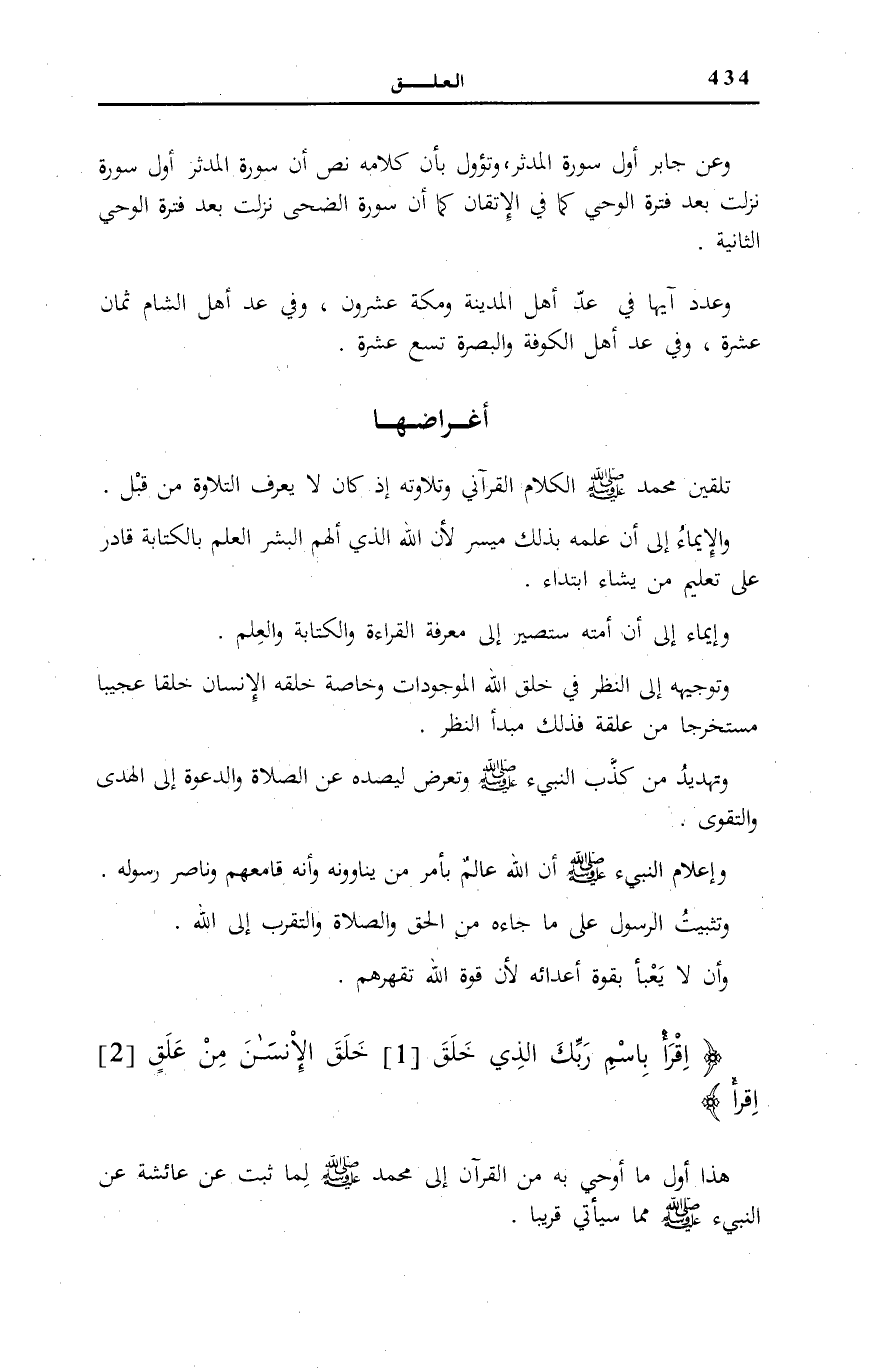 434
العلـــق
وعن جابر أول سورة المدثر،وتؤول بأن كلامه نص أن سورة المدثر أول سورة
نزلت بعد فترة الوحي كما في الإتقان كما أن سورة الضحى نزلت بعد فترة الوحي
الثانية .
وعدد آيها في عدّ أهل المدينة ومكة عشرون ، وفي عد أهل الشام ثمان
عشرة ، وفي عد أهل الكوفة والبصرة تسع عشرة .
أغـراضهـا
تلقين محمد ﷺ الكلام القرآني وتلاوته إذ كان لا يعرف التلاوة من قبْل .
والإيماءُ إلى أن علمه بذلك ميسر لأن الله الذي ألهم البشر العلم بالكتابة قادر
على تعليم من يشاء ابتداء .
وإيماء إلى أن أمته ستصير إلى معرفة القراءة والكتابة والعِلم .
وتوجيهه إلى النظر في خلق الله الموجودات وخاصة خلقه الإنسان خلقا عجيبا
مستخرجا من علقة فذلك مبدأ النظر .
وتهديدُ من كذَّب النبيء ﷺ وتعرض ليصده عن الصلاة والدعوة إلى الهدى
والتقوى .
وإعلام النبيء ﷺ أن الله عالمٌ بأمر من يناوونه وأنه قامعهم وناصر رسوله .
وتثبيتُ الرسول على ما جاءه من الحق والصلاة والتقرب إلى الله .
وأن لا يَعْبأ بقوة أعدائه لأن قوة الله تقهرهم .
﴿ اِقْرَأْ بِاسْمِ رَبِّكَ الذِي خَلَقَ [1] خَلَقَ الإِنْسَـٰنَ مِنْ عَلَقٍ [2]
اِقرأْ ﴾
هذا أول ما أوحي به من القرآن إلى محمد ﷺ لِما ثبت عن عائشة عن
النبيء ﷺ مما سيأتي قريبا .